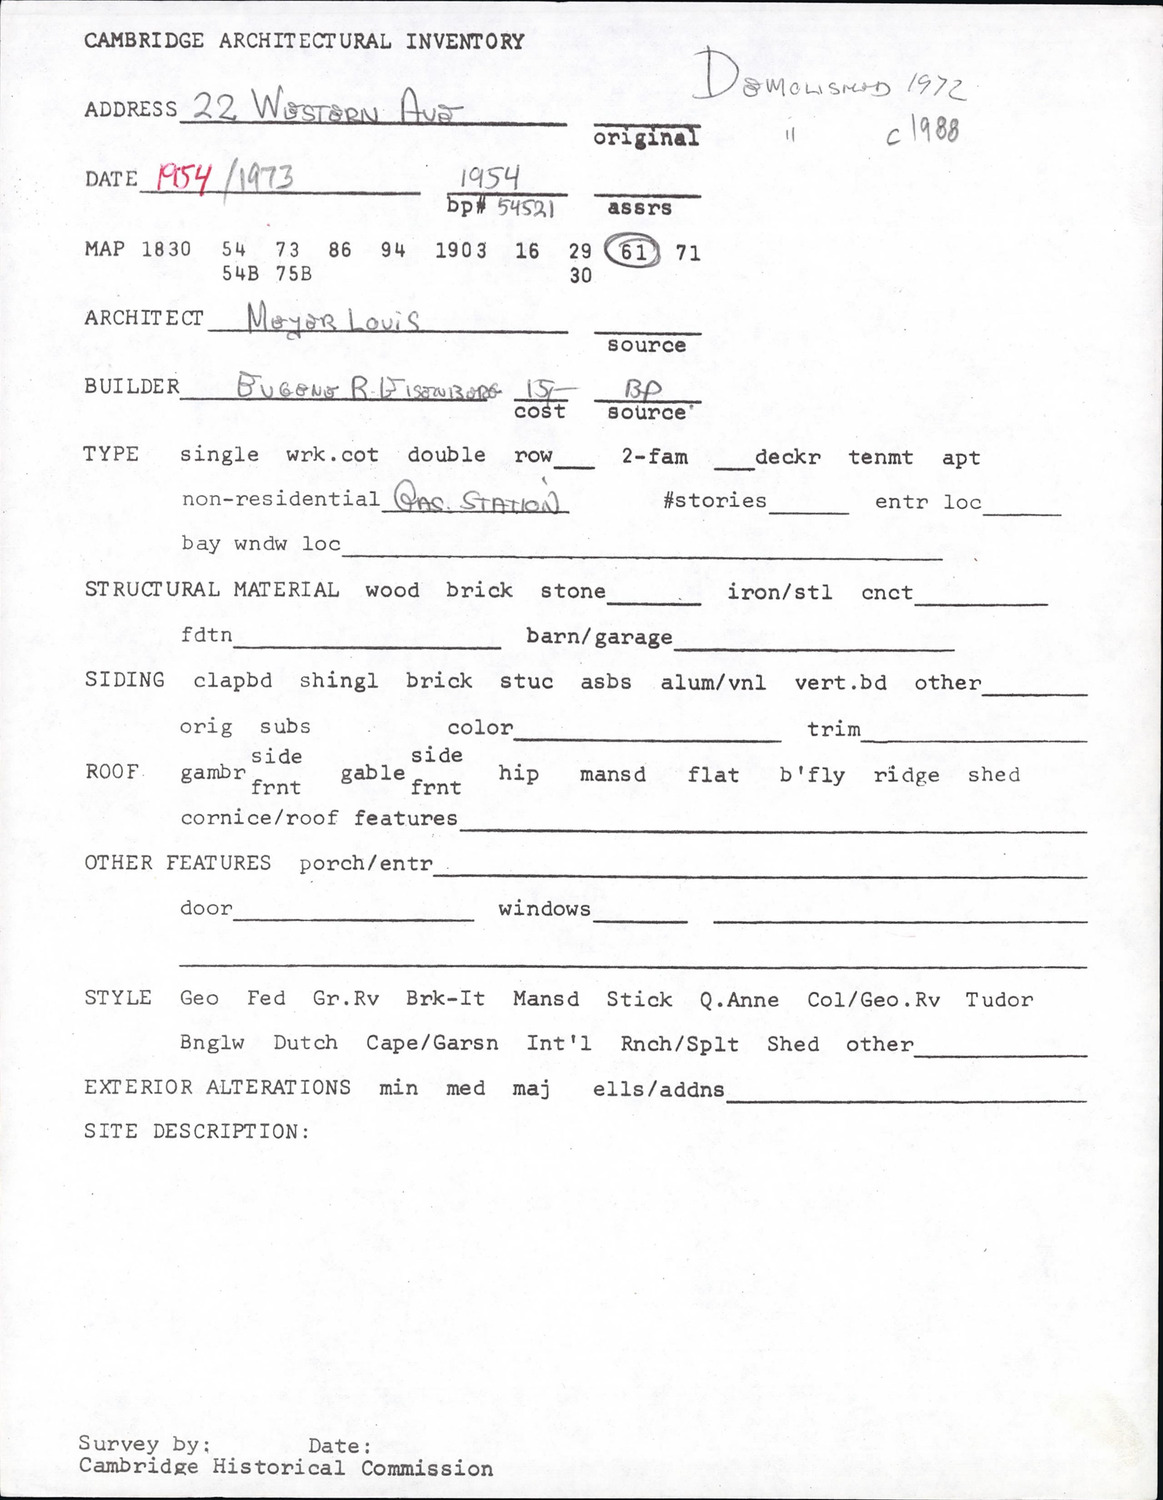 CAMBRIDGE ARCHITECTURAL INVENTORY
DEMOLISHED 1972
ADDRESS 22 WESTERN AVE original " c 1988
DATE 1954 /1973 1954
bp# 54521 assrs
MAP 1830 54 73 86 94 1903 16 29 61 71
54B 75B 30
ARCHITECT MEYER LOUIS
source
BUILDER EUGENE R. EISENBERG 15,- BP
cost source
TYPE single wrk.cot double row___ 2-fam ___deckr tenmt apt
non-residential GAS. STATION #stories______ entr loc______
bay wndw loc
STRUCTURAL MATERIAL wood brick stone_______ iron/stl cnct__________
fdtn____________________ barn/garage_____________________
SIDING clapbd shingl brick stuc asbs alum/vnl vert.bd other________
orig subs color____________________ trim_________________
side side
ROOF gambr gable hip mansd flat b'fly ridge shed
frnt frnt
cornice/roof features
OTHER FEATURES porch/entr
door__________________ windows_______
STYLE Geo Fed Gr.Rv Brk-It Mansd Stick Q.Anne Col/Geo.Rv Tudor
Bnglw Dutch Cape/Garsn Int'l Rnch/Splt Shed other_____________
EXTERIOR ALTERATIONS min med maj ells/addns
SITE DESCRIPTION:
Survey by: Date:
Cambridge Historical Commission